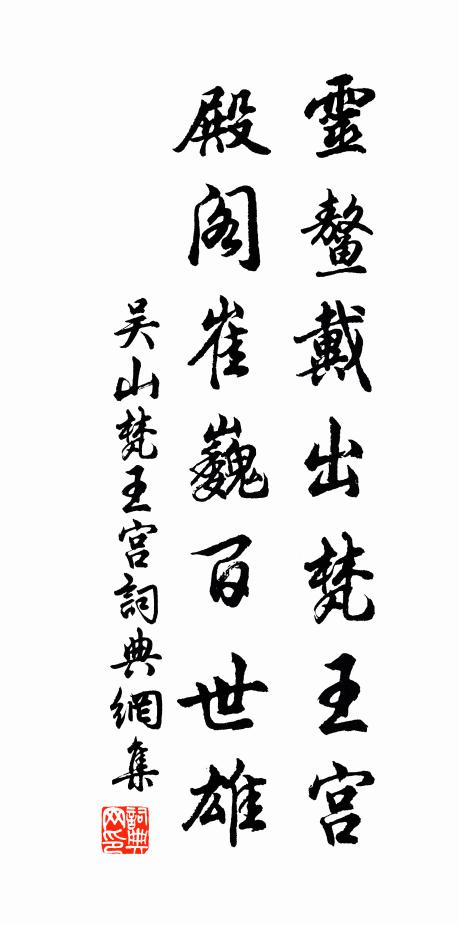 靈鰲戴出梵王宮
殿阁崔巍百世雄
吴山梵王宮詞典網集
詞典网印